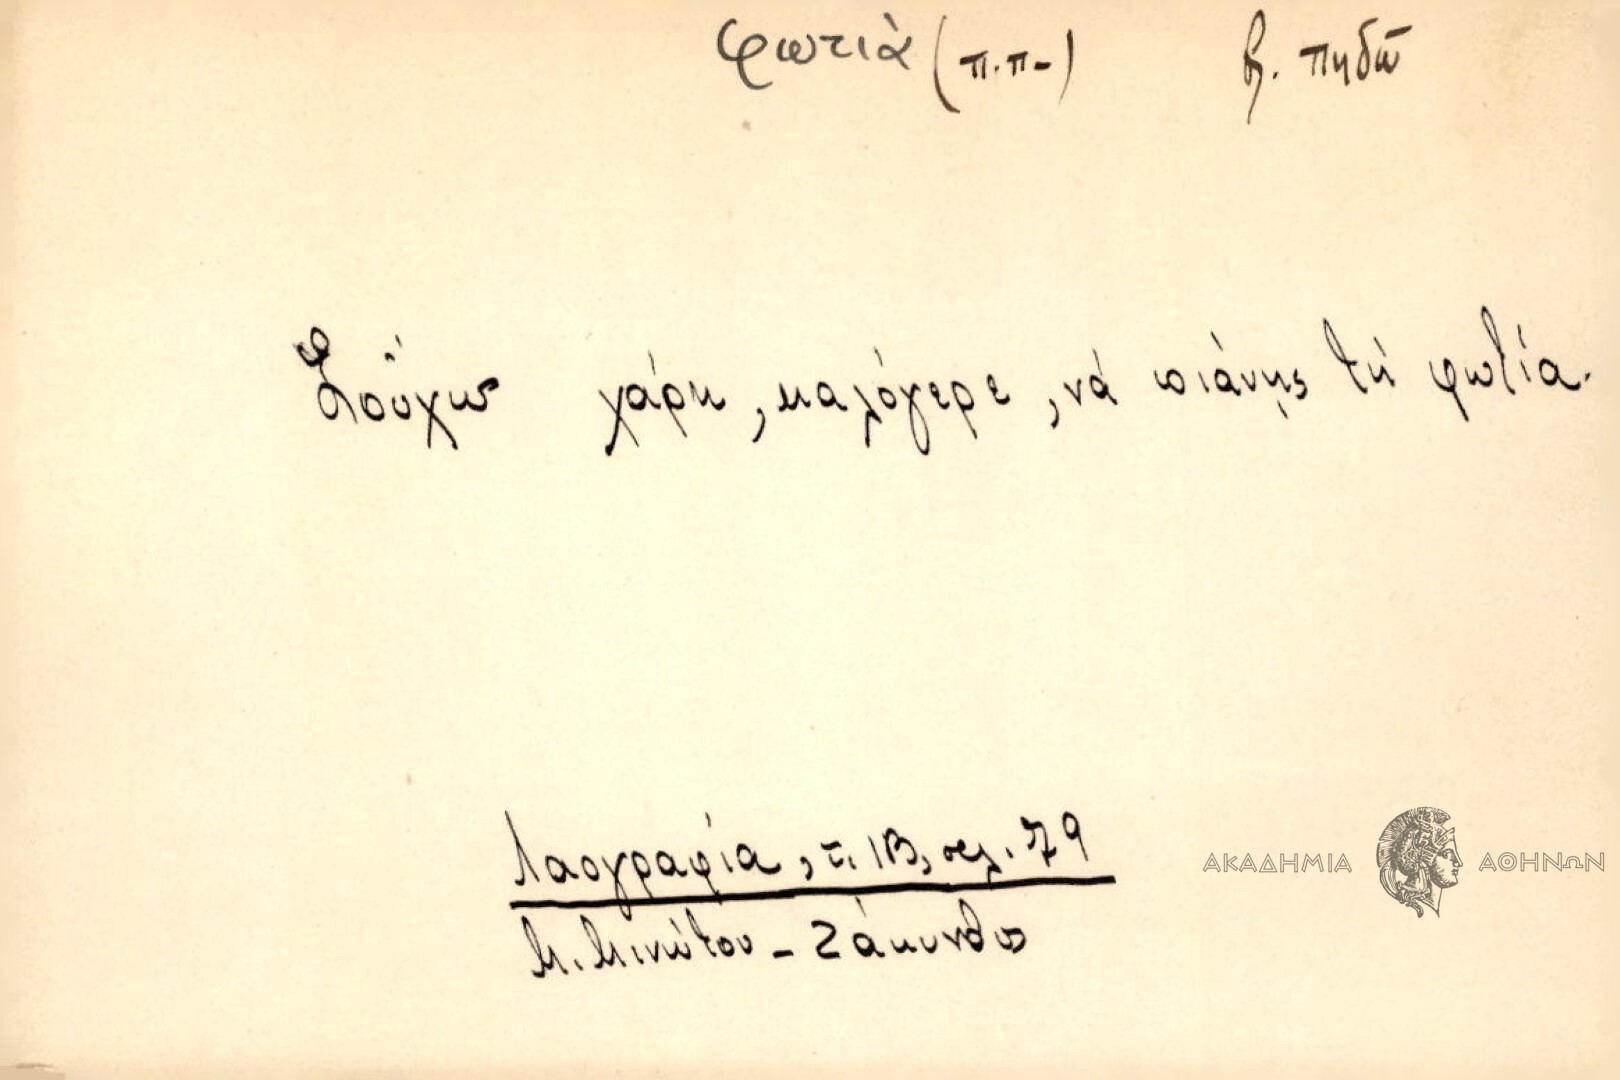 φωτιά (π.π-) βλ. πηδῶ
Σοὔχω χάρη, καλόγερε, νά πιάνῃς τή φωτία.
Λαογραφία, τ. ΙΒ, σελ. 79
Μ. Μινώτου - Ζάκυνθος
ΑΚΑΔΗΜΙΑ ΑΘΗΝΩΝ